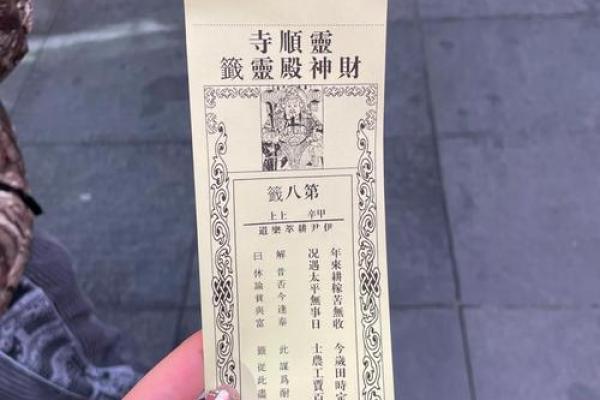 靈順寺
財神殿靈籤
第八籤
甲辛 上上
伊尹耕莘樂道
年來耕稼苦無收 今歲田時定
况遇太平無事日 士農工賈
解 昔否今逢泰 此 爲耐
曰 休論貧與富 籤 從此盡